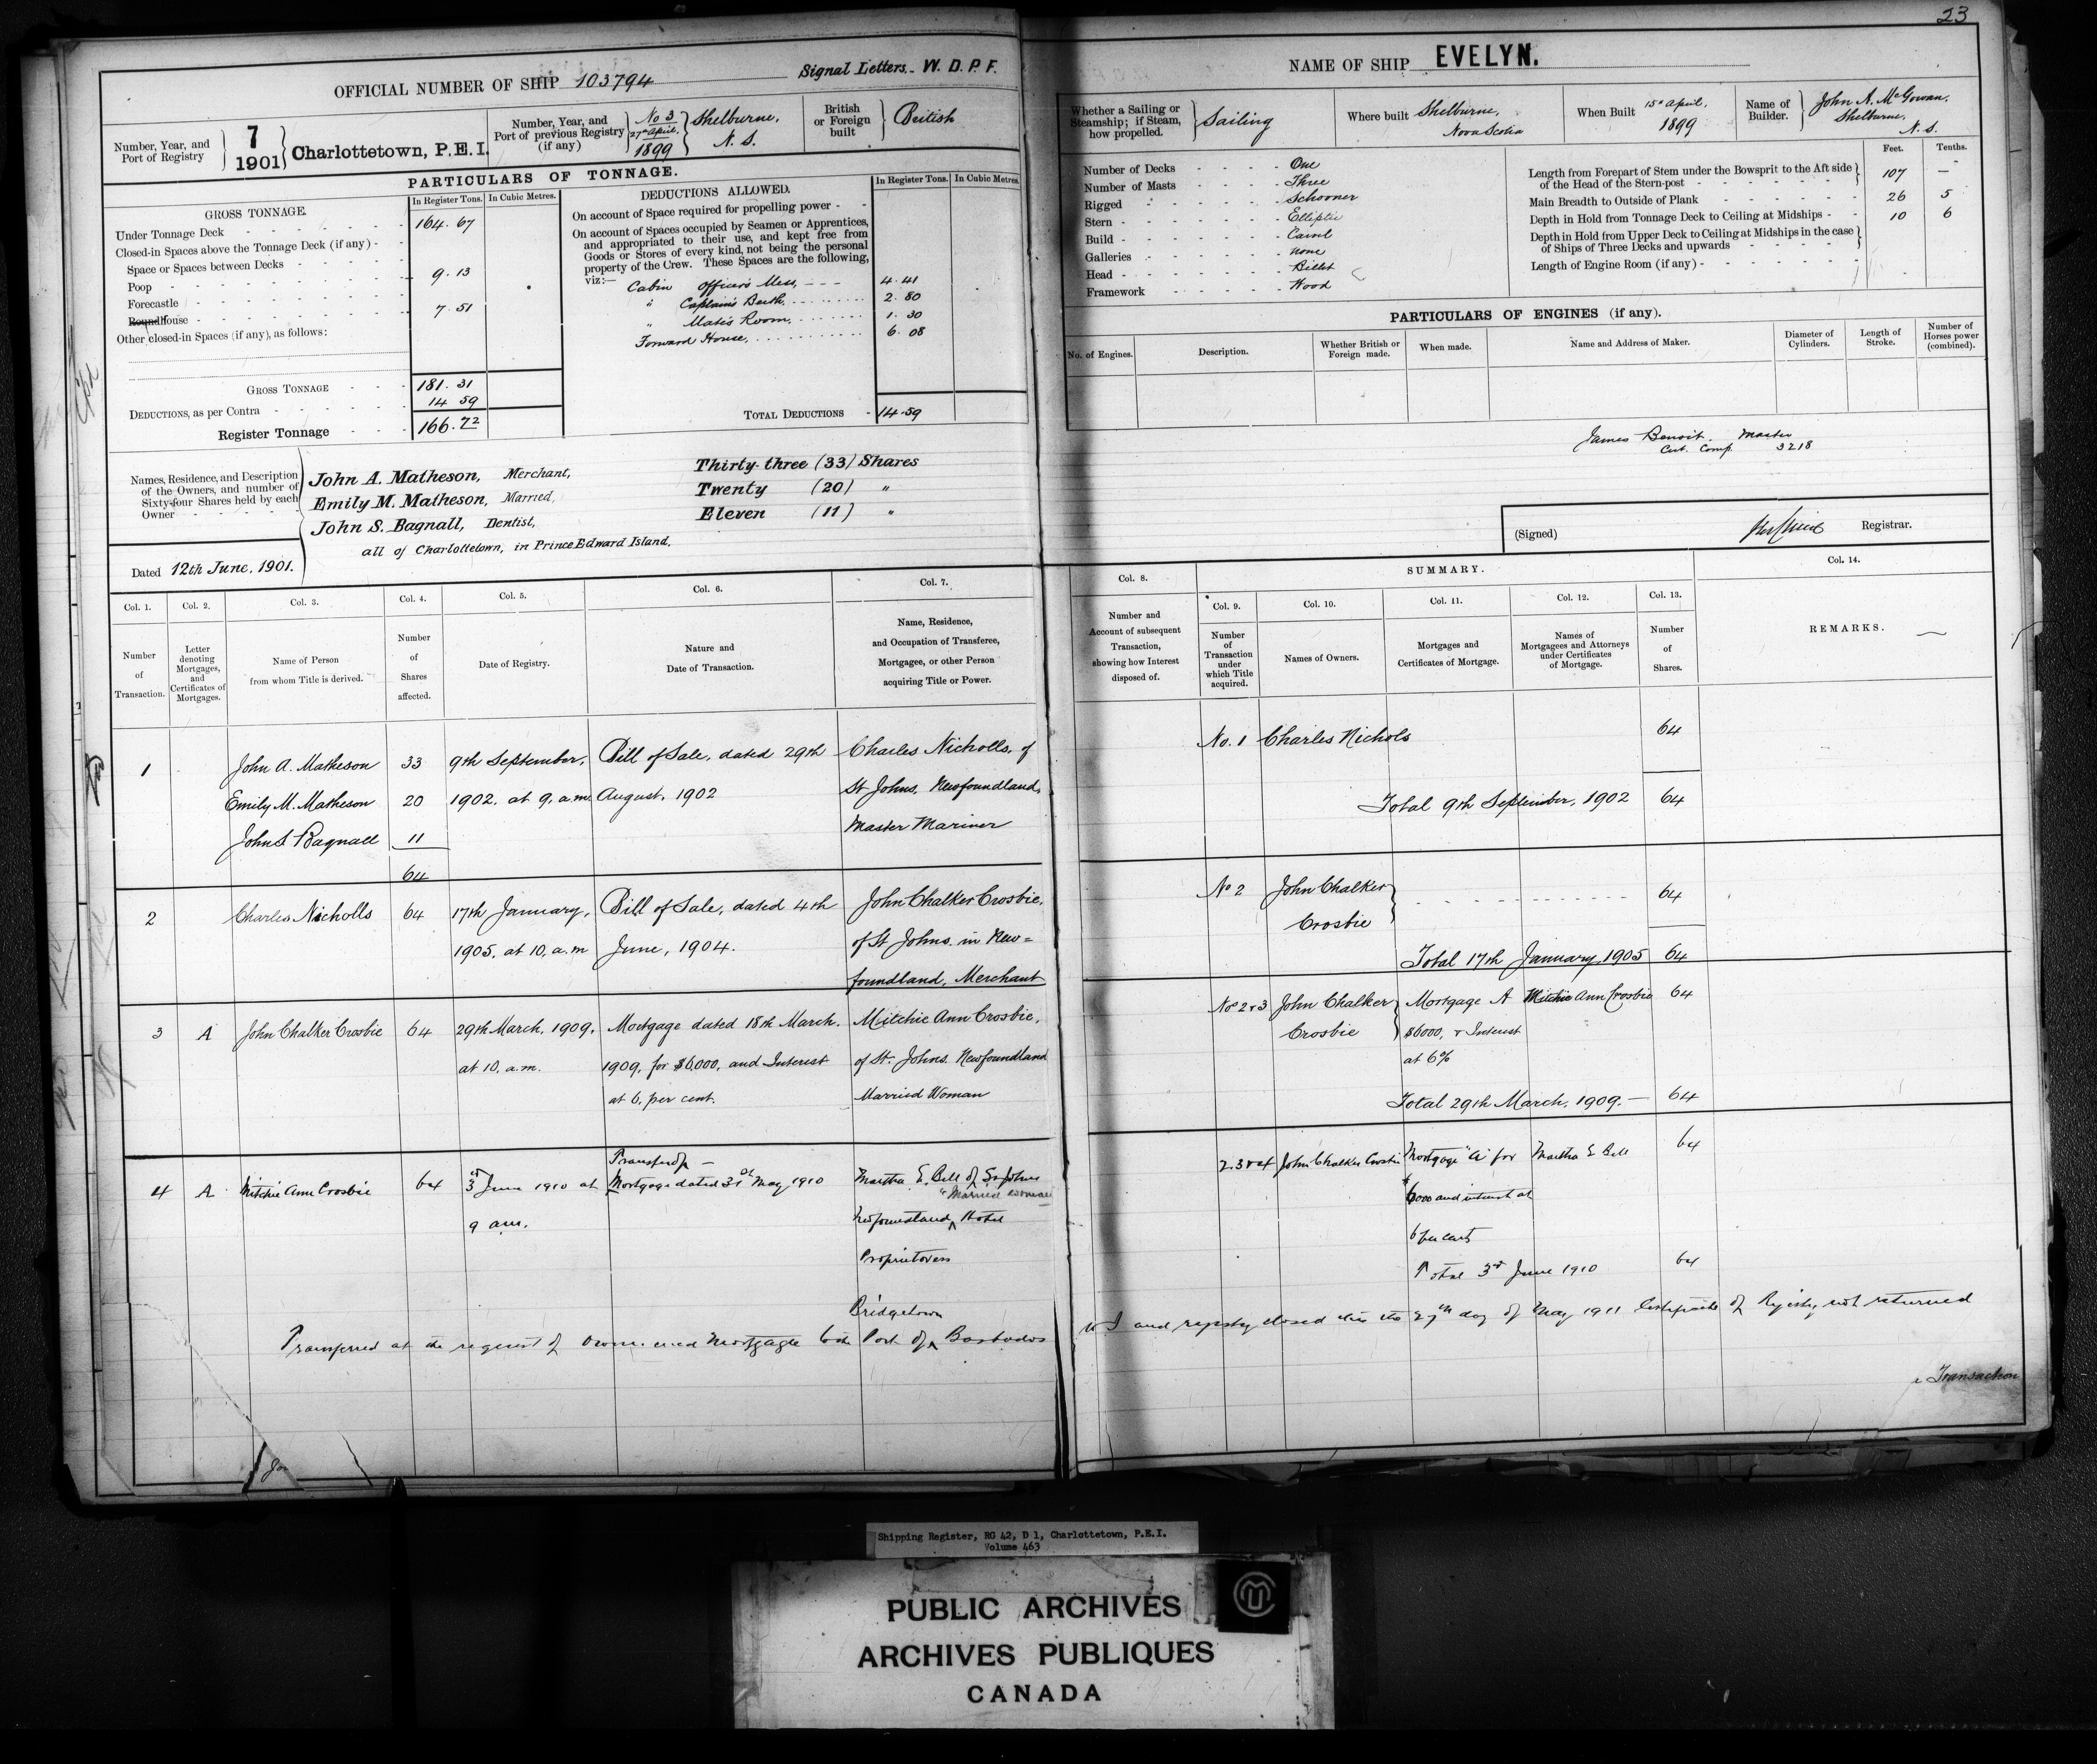 23
OFFICIAL NUMBER OF SHIP 103794
Signal Letters. W. D. P. F.
NAME OF SHIP EVELYN.
Number, Year, and
Port of Registry
7
1901
Charlottetown, P.E.I.
Number, Year, and
Port of previous Registry
(if any)
No 3
27th April,
1899
Shelburne,
N. S.
British
or Foreign
built
British
Whether a Sailing or
Steamship; if Steam,
how propelled.
Sailing
Where built
Shelburne,
Nova Scotia
When Built
15th April,
1899
Name of
Builder.
John A. McGowan.
Shelburne,
N. S.
PARTICULARS OF TONNAGE.
GROSS TONNAGE.
In Register Tons. In Cubic Metres.
Under Tonnage Deck 164. 67
Closed-in Spaces above the Tonnage Deck (if any)
Space or Spaces between Decks
Poop 9. 13
Forecastle
Roundhouse 7. 51
Other closed-in Spaces (if any), as follows:
GROSS TONNAGE 181. 31
DEDUCTIONS, as per Contra 14 59
Register Tonnage 166.72
DEDUCTIONS ALLOWED.
In Register Tons. In Cubic Metres.
On account of Space required for propelling power
On account of Spaces occupied by Seamen or Apprentices,
and appropriated to their use, and kept free from
Goods or Stores of every kind, not being the personal
property of the Crew. These Spaces are the following,
viz:—
Cabin Officers Mess, 4. 41
" Captains Berth. 2. 80
" Mates Room. 1. 30
Forward House, 6. 08
TOTAL DEDUCTIONS 14.59
Number of Decks One
Number of Masts Three
Rigged Schooner
Stern Elliptic
Build Carvel
Galleries None
Head Billet
Framework Wood
Feet. Tenths.
Length from Forepart of Stem under the Bowsprit to the Aft side
of the Head of the Stern-post 107 —
Main Breadth to Outside of Plank 26 5
Depth in Hold from Tonnage Deck to Ceiling at Midships 10 6
Depth in Hold from Upper Deck to Ceiling at Midships in the case
of Ships of Three Decks and upwards
Length of Engine Room (if any)
PARTICULARS OF ENGINES (if any).
No. of Engines.
Description.
Whether British or
Foreign made.
When made.
Name and Address of Maker.
Diameter of
Cylinders.
Length of
Stroke.
Number of
Horses power
(combined).
James Benoit. Master
Cert. Comp. 3218
Names, Residence, and Description
of the Owners, and number of
Sixty-four Shares held by each
Owner
John A. Matheson, Merchant, Thirty-three (33) Shares
Emily M. Matheson, Married, Twenty (20) "
John S. Bagnall, Dentist, Eleven (11) "
all of Charlottetown, in Prince Edward Island.
Dated 12th June, 1901.
(Signed)
Registrar.
Col. 1.
Number
of
Transaction.
Col. 2.
Letter
denoting
Mortgages,
and
Certificates of
Mortgages.
Col. 3.
Name of Person
from whom Title is derived.
Col. 4.
Number
of
Shares
affected.
Col. 5.
Date of Registry.
Col. 6.
Nature and
Date of Transaction.
Col. 7.
Name, Residence,
and Occupation of Transferee,
Mortgagee, or other Person
acquiring Title or Power.
Col. 8.
Number and
Account of subsequent
Transaction,
showing how Interest
disposed of.
SUMMARY.
Col. 9.
Number
of
Transaction
under
which Title
acquired.
Col. 10.
Names of Owners.
Col. 11.
Mortgages and
Certificates of Mortgage.
Col. 12.
Names of
Mortgagees and Attorneys
under Certificates
of Mortgage.
Col. 13.
Number
of
Shares.
Col. 14.
REMARKS.
1 John A. Matheson 33 9th September, Bill of Sale, dated 29th Charles Nicholls, of
Emily M. Matheson 20 1902. at 9, a.m. August, 1902 St Johns, Newfoundland,
John S Bagnall 11 Master Mariner
64
No. 1 Charles Nichols 64
Total 9th September, 1902 64
2 Charles Nicholls 64 17th January, Bill of Sale, dated 4th John Chalker Crosbie,
1905, at 10, a.m June, 1904. of St Johns. in New=
foundland, Merchant
No 2 John Chalker 64
Crosbie
Total 17th January, 1905 64
3 A John Chalker Crosbie 64 29th March, 1909, Mortgage dated 18th March. Mitchie Ann Crosbie,
at 10, a.m. 1909, for $6,000, and Interest of St. Johns. Newfoundland
at 6, per cent. Married Woman
Nos 2 & 3 John Chalker Mortgage A Mitchie Ann Crosbie 64
Crosbie $6000, & Interest
at 6%
Total 29th March, 1909. — 64
Transfer of —
4 A Mitchie Ann Crosbie 64 3rd June 1910 at Mortgage dated 31st May 1910 Martha E. Bell of St Johns
"Married woman
9 am. Newfoundland ^ Hotel
Proprietress
2.3 & 4 John Chalker Crosbie Mortgage "A" for Martha E Bell 64
$6000 and interest at
6 per cent
Total 3rd June 1910 64
Bridgetown
Transferred at the request of Owner and Mortgagee to the Port of ^ Barbados
and registry closed this the 27th day of May 1911 Certificate of Registry not returned
Transaction
Shipping Register, RG 42, D 1, Charlottetown, P.E.I.
Volume 463
PUBLIC ARCHIVES
ARCHIVES PUBLIQUES
CANADA